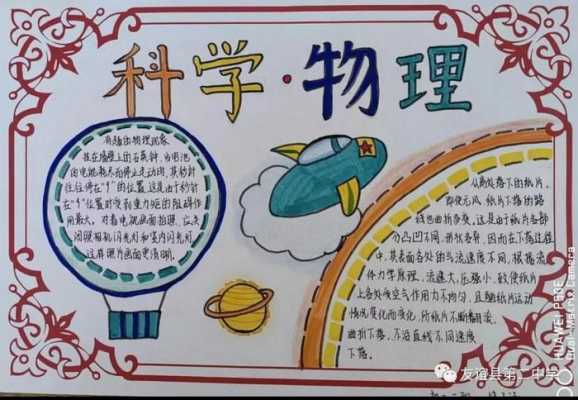 科学·物理
有趣的物理现象
挂在墙壁上的石英钟,当电池
的电能耗尽而停止走动时,其秒针
往往停在"9"的位置。这是由于秒针
在"9"位置时受到重力矩的阻碍作
用最大。对着电视画面拍照,应关
闭照相机闪光灯和室内闪光灯,
这样照片画面更清晰。
从高处落下的纸片,
即使无风,纸片下落的路
线也曲折多变。这是由于纸片各部
分凸凹不同,形状各异,因而在下落过程
中,其表面各处的气流速度不同,根据流
体力学原理,流速大,压强小,致使纸片
上各处受空气作用力不均匀,且随纸片运动
情况变化而变化,所以纸片不断翻滚,
曲折下落,不沿直线不同速度
下落。
友谊县第二中学
HUAWEI